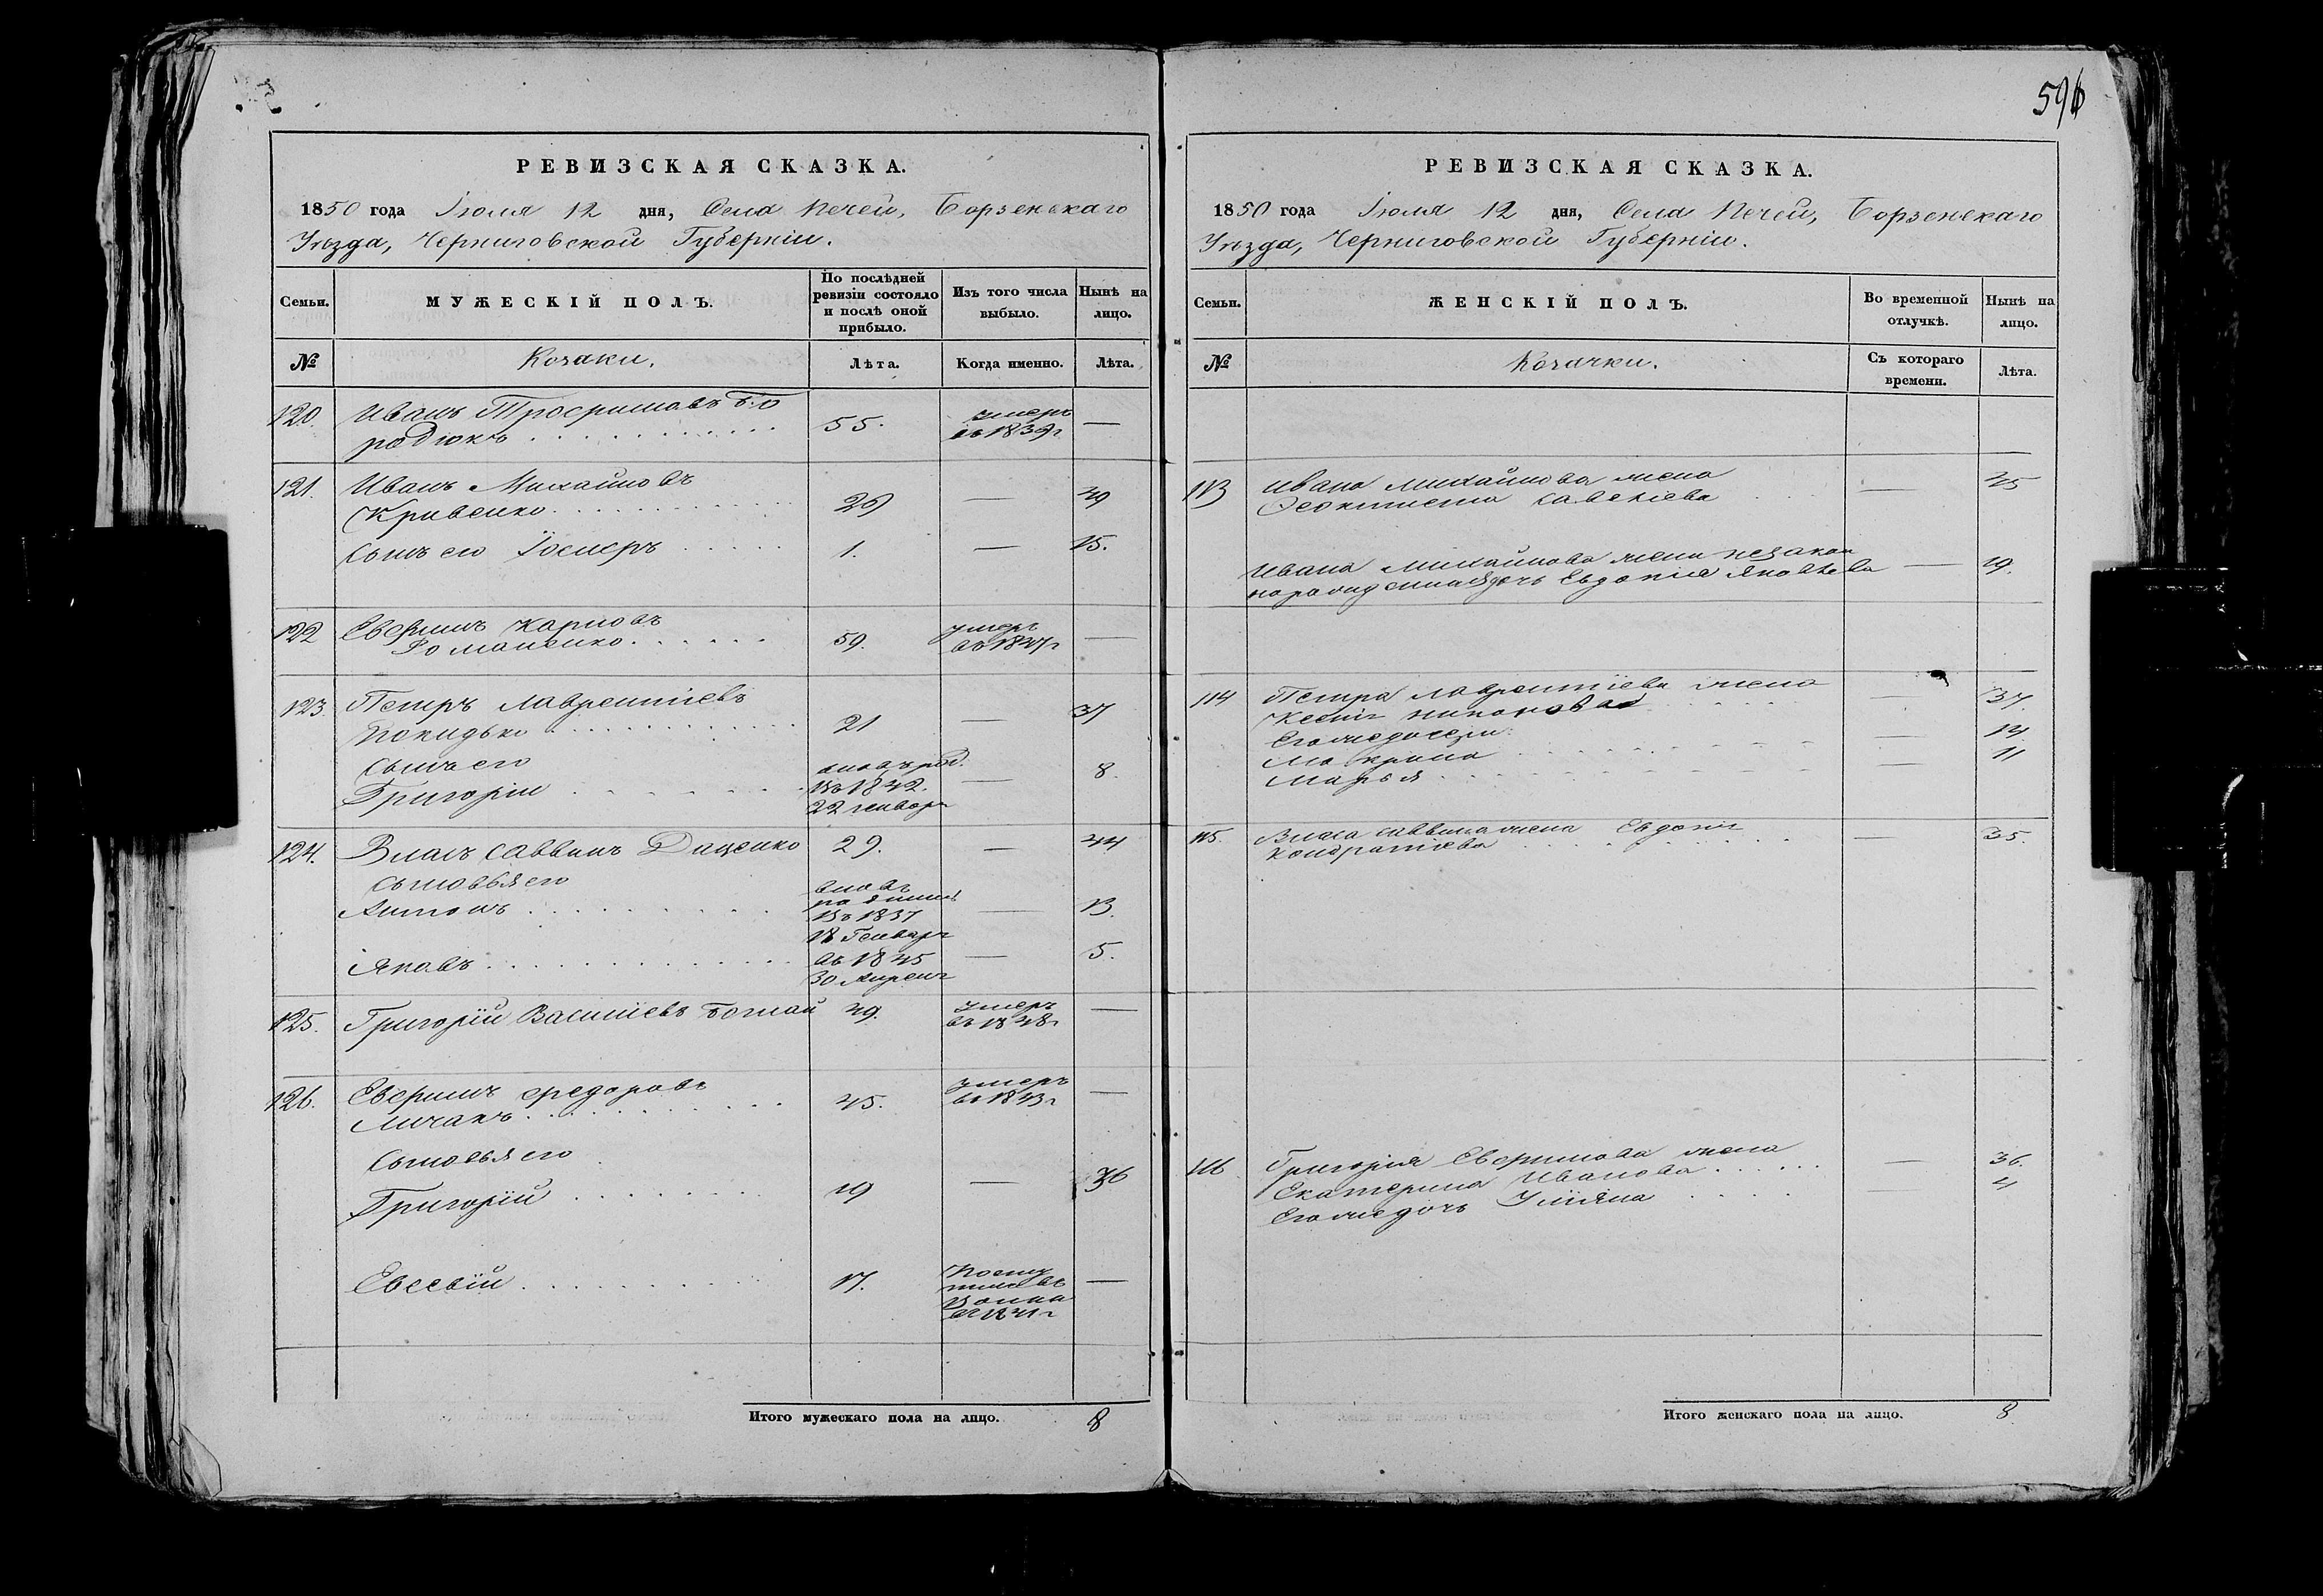 596
РЕВИЗСКАЯ СКАЗКА.
1850 года Іюля 12 дня, Села Печей, Борзенскаго
Уѣзда, Черниговской Губерніи.
Семьи.
МУЖЕСКІЙ ПОЛЪ.
По послѣдней ревизіи состояло и послѣ оной прибыло.
Изъ того числа выбыло.
Нынѣ на лицо.
№
Козаки.
Лѣта.
Когда именно.
Лѣта.
120. Иванъ Трофимовъ Бо 55. умеръ —
родюкъ въ 1839г
121. Иванъ Михайловъ
Кривенко 29 — 49
Сынъ его Іосифъ 1. — 15.
122 Евфимъ Карповъ умеръ
Романенко 59. въ 1847г —
123. Петръ Лаврентіевъ
21 — 37
Сынъ его вновь род.
Григорій въ 1842. — 8.
22 генваря
124. Власъ Саввинъ Даценко 29. — 44
Сыновья его вновь
Антонъ въ 1837 — 13.
18 Генваря
Яковъ въ 1845 — 5.
30 Апреля
125. Григорій Василіевъ 49. умеръ —
въ 1848г
126. Евфимъ Федоровъ 45. умеръ —
Личакъ въ 1843г
Сыновья его
Григорій 19 — 36
Евсевій 17. —
въ 1841г
Итого мужескаго пола на лицо. 8
РЕВИЗСКАЯ СКАЗКА.
1850 года Іюля 12 дня, Села Печей, Борзенскаго
Уѣзда, Черниговской Губерніи.
Семьи.
ЖЕНСКІЙ ПОЛЪ.
Во временной отлучкѣ.
Нынѣ на лицо.
№
Козачки.
Съ котораго времени.
Лѣта.
113 Ивана Михайлова жена 45
Феоктиста Савеліева —
Ивана Михайлова жены незакон
норожденная дочь Евдокія Яковлева — 19.
114 Петра Лаврентіева жена — 37.
Ксенія
Его же дочери — 14
Макрина — 11
Марья
115. Власа Саввина жена Евдокія — 35.
Кондратіева
116 Григорія Евфимова жена — 36.
Екатерина Иванова
Его же дочь Уліяна — 4
Итого женскаго пола на лицо. 8